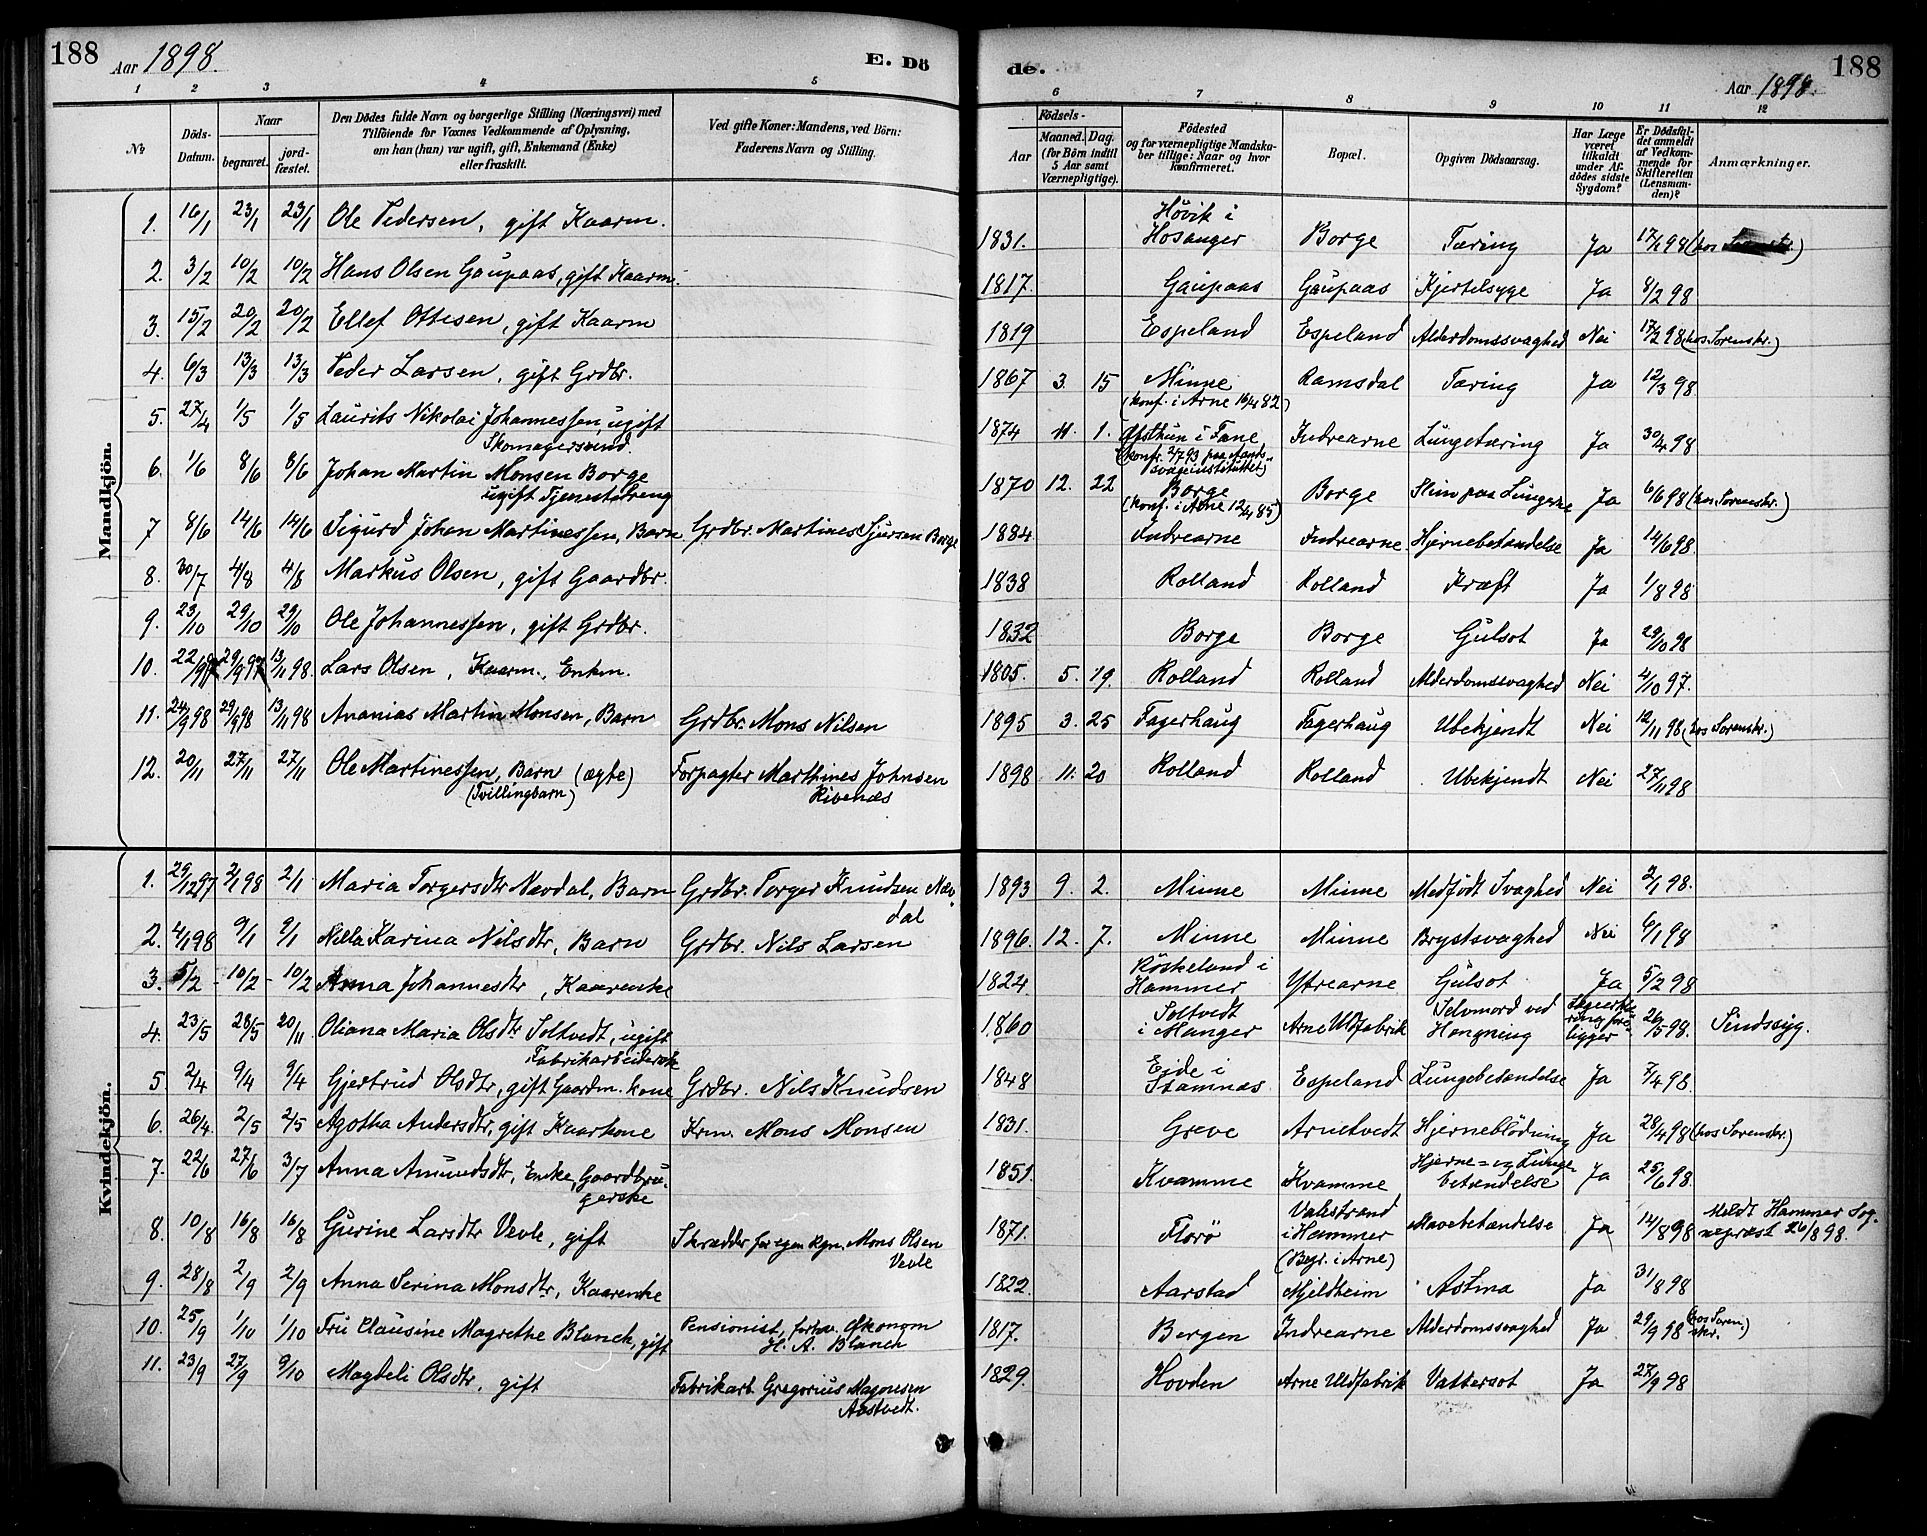 188
Aar 1898.
E. Dö
de.
Aar 1898.
188
1 2 3 4 5 6 7 8 9 10 11 12
No
Döds-Datum.
Naar
begravet.
jord-fæstet.
Den Dödes fulde Navn og borgerlige Stilling (Næringsvei) med
Tilföiende for Voxnes Vedkommende af Oplysning,
om han (hun) var ugift, gift, Enkemand (Enke)
eller fraskilt.
Ved gifte Koner: Mandens, ved Börn:
Faderens Navn og Stilling.
Födsels-
Aar
Maaned. Dag.
(for Börn indtil
5 Aar samt
Værnepligtige).
Födested
og for værnepligtige Mandska-
ber tillige: Naar og hvor
konfirmeret.
Bopæl.
Opgiven Dödsaarsag.
Har Læge
været
tilkaldt
under Af-
dödes sidste
Sygdom?
Er Dödsfal-
det anmeldt
af Vedkom-
mende for
Skifteretten
(Lensman-
den)?
Anmærkninger.
Mandkjön.
1. 16/1 23/1 23/1 Ole Pedersen, gift Kaarm. 1831. Hövik i Hosanger Borge Tæring Ja 17/1 98
2. 3/2 10/2 10/2 Hans Olsen Gaupaas, gift Kaarm. 1817. Gaupaas Gaupaas Kjertelsyge Ja 8/2 98
3. 15/2 20/2 20/2 Ellef Ottesen, gift Kaarm 1819 Espeland Espeland Alderdomssvaghed Nei 17/2 98 (hos Sorenskr.)
4. 6/3 13/3 13/3 Peder Larsen, gift Grdbr. 1867 3. 15 Minne (konf. i Arne 16/4 82) Ramsdal Tæring Ja 12/3 98
5. 27/4 1/5 1/5 Laurits Nikolai Johannessen, ugift Skomagersvend. 1874 11. 1. Øfsthun i Fane, (konfr. 2/7 93 paa Aands-svageinstituttet) Indrearne Lungetæring Ja 30/4 98
6. 1/6 8/6 8/6 Johan Martin Monsen Borge ugift Tjenestedreng 1870 12. 22 Borge (konf. i Arne 12/4 85) Borge Slim paa Lungerne Ja 6/6 98 (hos Sorenskr.)
7 8/6 14/6 14/6 Sigurd Johan Martinessen, Barn Grdbr. Martines Sjursen Borge 1884 Indrearne Indrearne Hjernebetændelse Ja 14/6 98.
8. 30/7 4/8 4/8 Markus Olsen, gift Gaardbr. 1838 Rolland Rolland Kræft Ja 1/8 98
9. 23/10 29/10 29/10 Ole Johannessen, gift Grdbr. 1832 Borge Borge Gulsot Ja 29/10 98
10. 22/9 97 29/9 97 13/11 98. Lars Olsen, Kaarm., Enkem. 1805. 5. 19. Rolland Rolland Alderdomssvaghed Nei 4/10 97.
11. 24/9 98 29/9 98 13/11 98 Ananias Martin Monsen, Barn Grdbr. Mons Nilsen 1895 3. 25 Fagerhaug Fagerhaug Ubekjendt Nei 12/11 98 (hos Sorenskr.)
12. 20/11 27/11 27/11 Ole Martinessen, Barn (ægte) (Tvillingbarn) Forpagter Marthines Johnsen Ribenæs 1898 11. 20 Rolland Rolland Ubekjendt Nei 27/11 98
Kvindekjön.
1. 29/12 97 2/1 98 2/1 Maria Torgersdtr Nævdal, Barn Grdbr. Torger Knudsen Næv-dal 1893 9. 2. Minne Minne Medfödt Svaghed Nei 2/1 98.
2. 4/1 98 9/1 9/1 Nilla Karina Nilsdtr, Barn Grdbr. Nils Larsen 1896. 12. 7. Minne Minne Brystsvaghed Nei 6/1 98
3. 5/2 10/2 10/2 Anna Johannesdtr, Kaarenke 1824. Röskeland i Hammer Ytrearne Gulsot Ja 5/2 98
4. 23/5 28/5 20/11 Oliana Maria Olsdtr Soltvedt, ugift Fabrikarbeiderske 1860 Soltvedt i Manger Arne Uldfabrik Selvmord ved Hængning Lægeerklæring foreligger 26/5 98. Sindssyg.
5 2/4 9/4 9/4 Gjertrud Olsdtr, gift Gaardm. kone Grdbr. Nils Knudsen 1848 Eide i Stamnæs. Espeland Lungebetændelse Ja 7/4 98.
6. 26/4 2/5 2/5 Agotha Andersdtr, gift Kaarkone Krm. Mons Monsen 1831. Greve Arnetvedt Hjerneblödning Ja 28/4 98 (hos Sorenskr.)
7. 22/6 27/6 3/7 Anna Amundsdtr, Enke, Gaardbru-gerske 1851. Kvamme Kvamme Hjerne= og Lunge-betændelse Ja 25/6 98.
8. 10/8 16/8 16/8 Gurine Larsdtr Vevle, gift Skrædder for egen Rgn. Mons Olsen Vevle 1871. Florö Valestrand i Hammer (Begr. i Arne) Mavebetændelse Ja 14/8 98 Meldt Hammer Sog-nepræst 26/8 98.
9. 28/8 2/9 2/9 Anna Serina Monsdtr, Kaarenke 1822. Aarstad Mjeldheim Astma Ja 31/8 98
10. 25/9 1/10 1/10 Fru Clausine Magrethe Blanck, gift Pensionist, forhv. Økonom H. A. Blanck 1817. Bergen Indrearne Alderdomssvaghed Ja 29/9 98 (hos Soren-skr.)
11. 23/9 27/9 9/10 Magteli Olsdtr, gift Fabrikarb. Gregorius Magnesen Aastvedt. 1829. Hovden Arne Uldfabrik Vattersot Ja 27/9 98